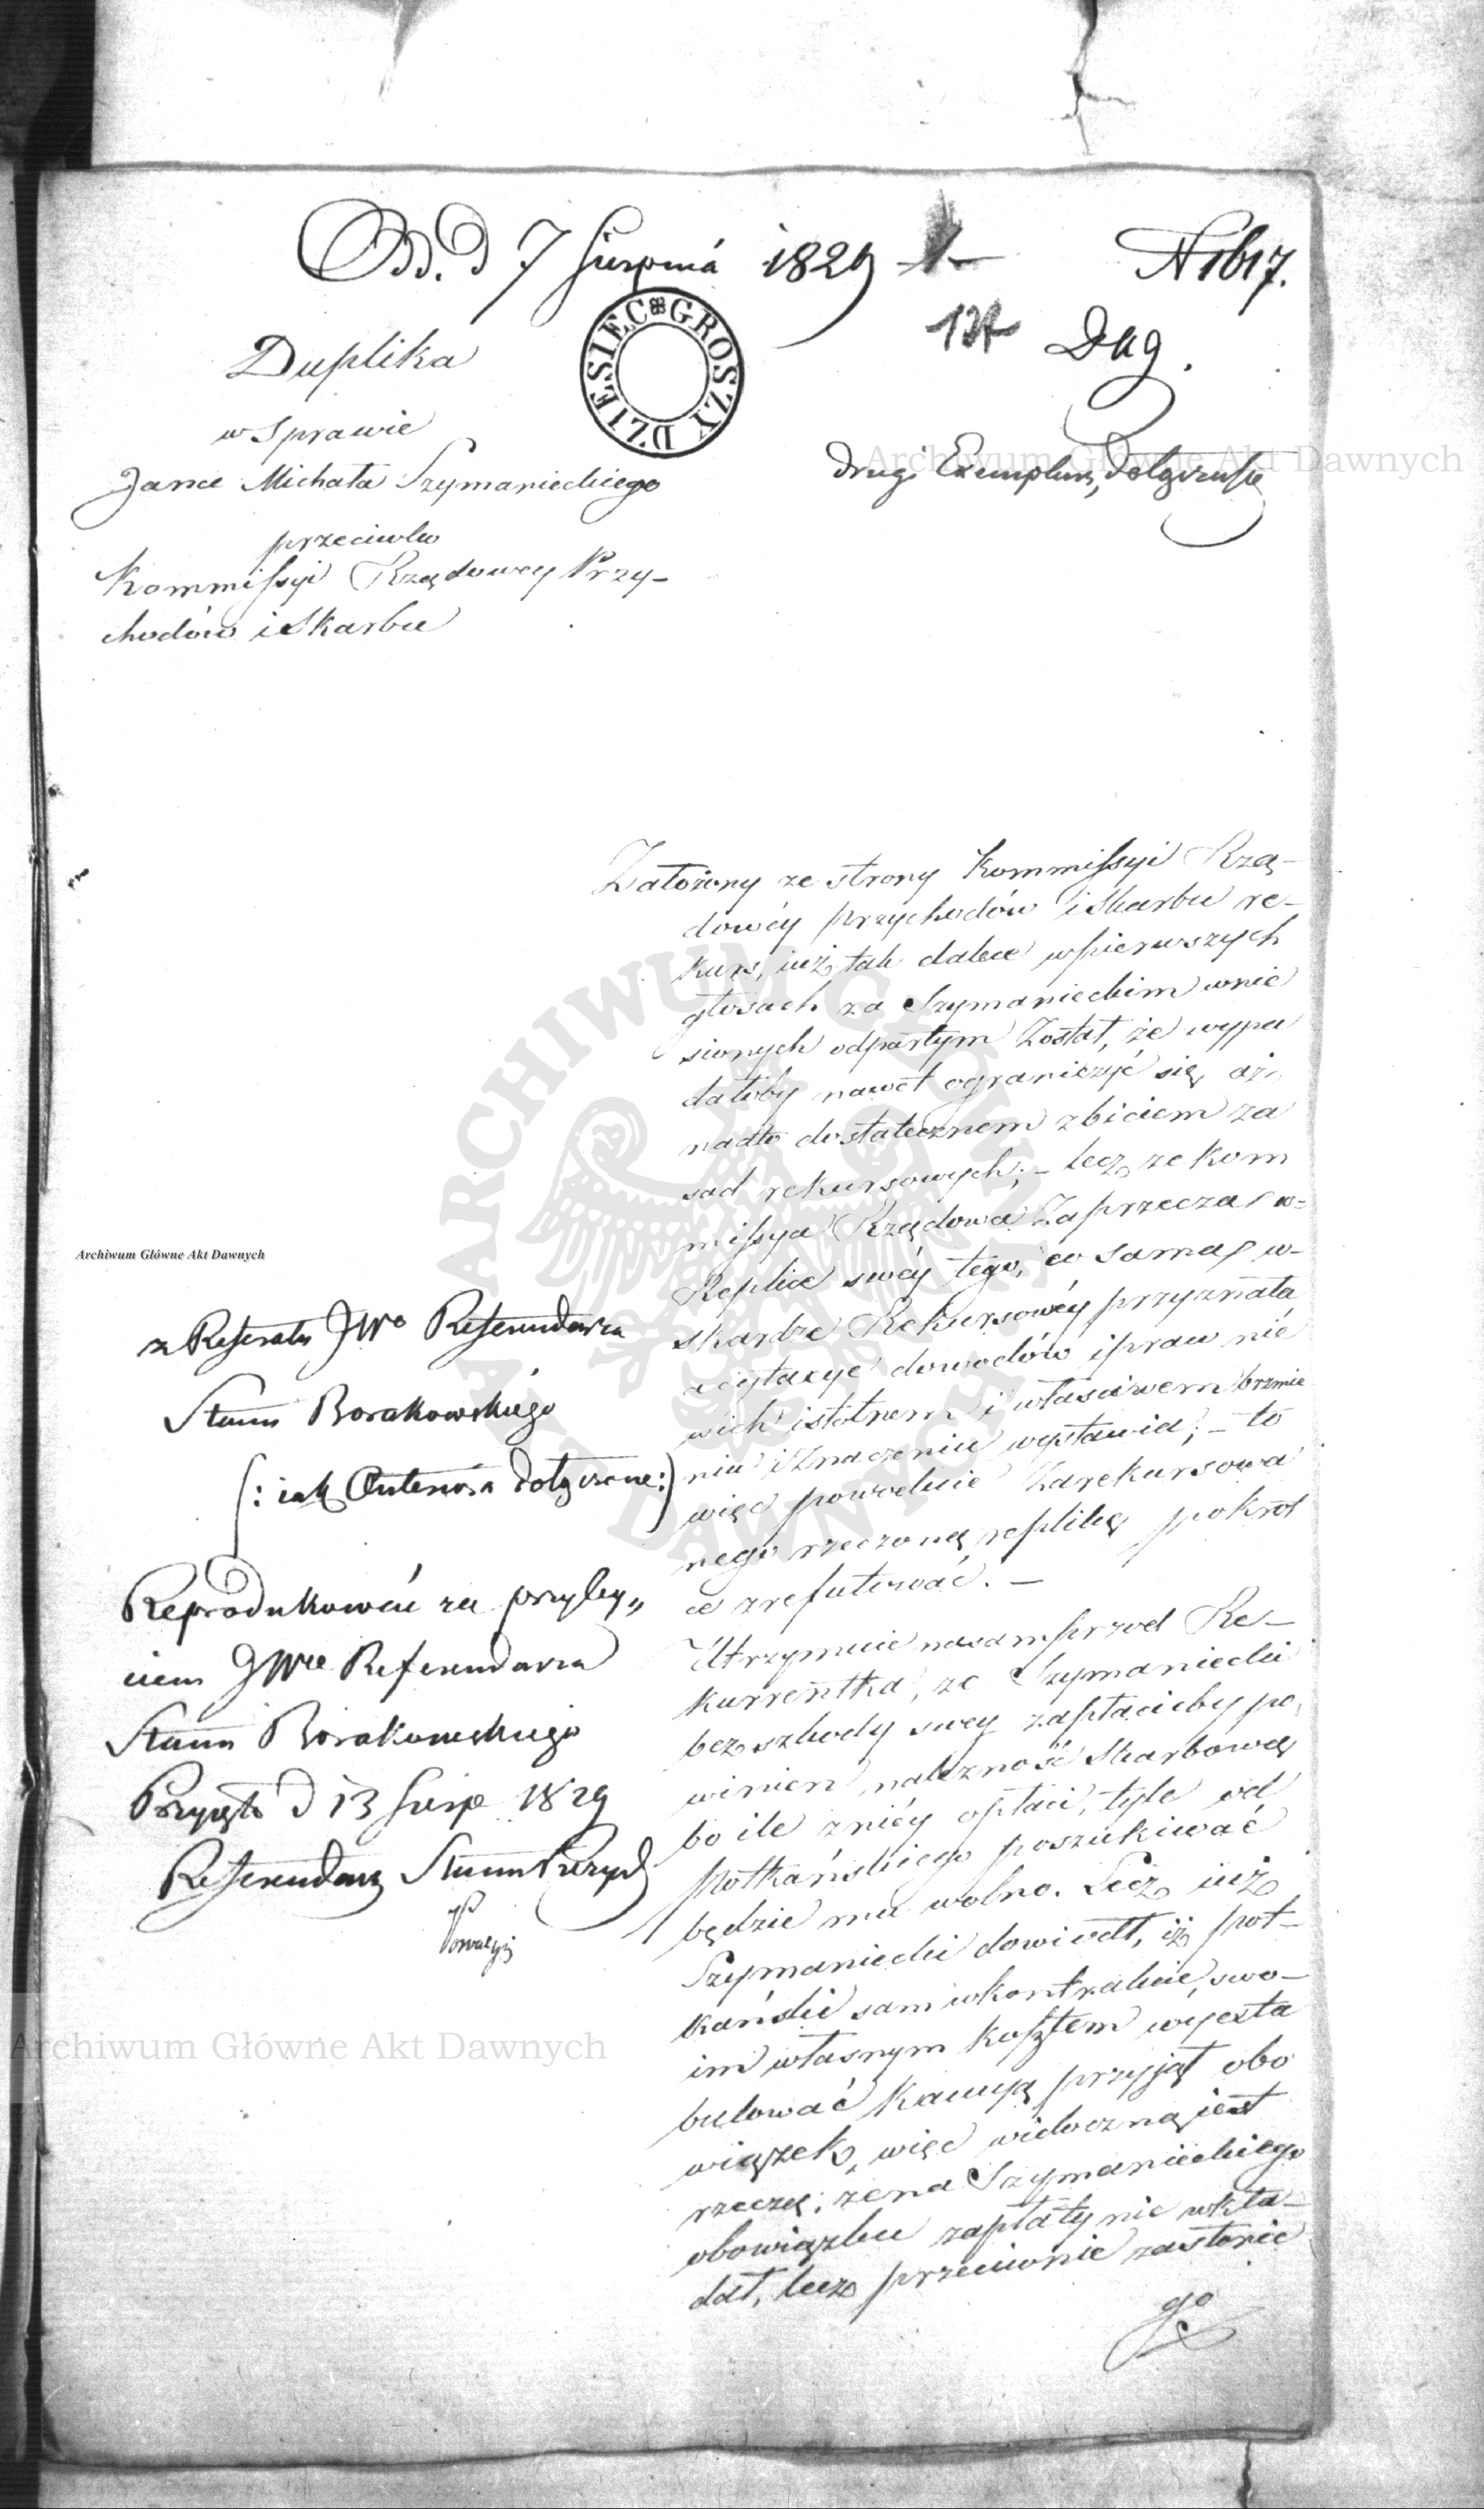 Odd. d 7 Sierpnia 1829
N 1617.
137
Dug.
DZIESIEC GROSZY
Duplika
w Sprawie
Jana Michała Szymanieckiego
przeciwko
Kommissyi Rządowey Przy-
chodów i Skarbu
drugi Exemplarz dołącza się
Założony ze strony Kommissyi Rzą-
dowéy przychodów i Skarbu re-
kurs, iuż tak dalece w pierwszych
głosach za Szymanieckim wnie
sionych odpartym Został, że wypa
dałoby nawet ograniczyć się aż
nadto dostatecznem zbiciem za
sad rekursowych; – lecz ze Kom
missya Rządowa Zaprzecza w-
Replice swéy tego, co sama w-
skardze Rekursowéy przyznała
a cytacye dowodów i praw nié
w ich istotnem i właściwem brzmie
niu i Znaczeniu wystawia; – to
więc powodnie Zarekursowa
nego rzeczoną replikę pokrót
ce zrefutować. –
Utrzymuie nasamprzod Re-
kurrentka, ze Szymaniecki
bez szkody swey zapłaciłby po
winien należność Skarbową
bo ile zniéy opłaci, tyle od
Potkańskiego poszukiwać
będzie mu wolno. Lecz iuż
Szymaniecki dowiodł, iż Pot-
kański sam w kontrakcie, swo-
im własnym kosztem wyexta
bulować Kaucyą przyjął obo
wiązek, więc widoczną iest
rzeczą; że na Szymanieckiego
obowiązku zapłaty nie wkła-
dał, lecz przeciwnie zastrzegł
go
z Referatu JWo Referendarza
Stanu Borakowskiégo
(: iak Anteriora dołączone:)
Reprodukować za przyby„
ciem JWo Referendarza
Stanu Borakowskiego
Przyjęto d 13 Sierp 1829
Referendarz Stanu Prezyd
Archiwum Główne Akt Dawnych
Archiwum Główne Akt Dawnych
Archiwum Główne Akt Dawnych
ARCHIWUM GŁÓWNE AKT DAWNYCH